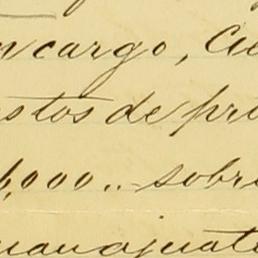 ncargo, Cu
stos de pro
6,000.. sobre
uanajuato